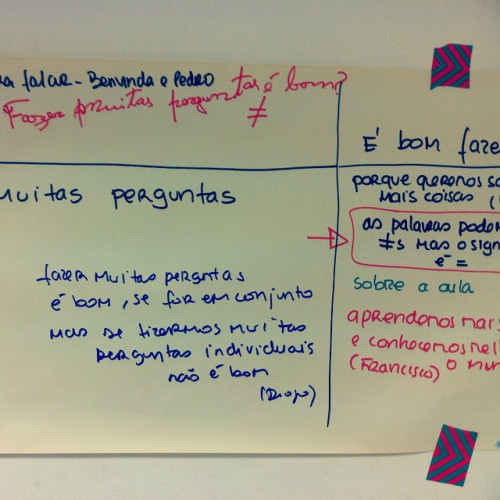 ra falar - Benvinda e Pedro
Fazer muitas perguntas é bom?
≠
É bom faze
muitas perguntas
porque queremos sa
mais coisas (
as palavras podem
≠s mas o sign
é =
sobre a aula
fazer muitas perguntas
é bom, se for em conjunto
mas se fizermos muitas
perguntas individuais
não é bom
(Diogo)
aprendemos mais
e conhecemos melh
(Francisco) o mun